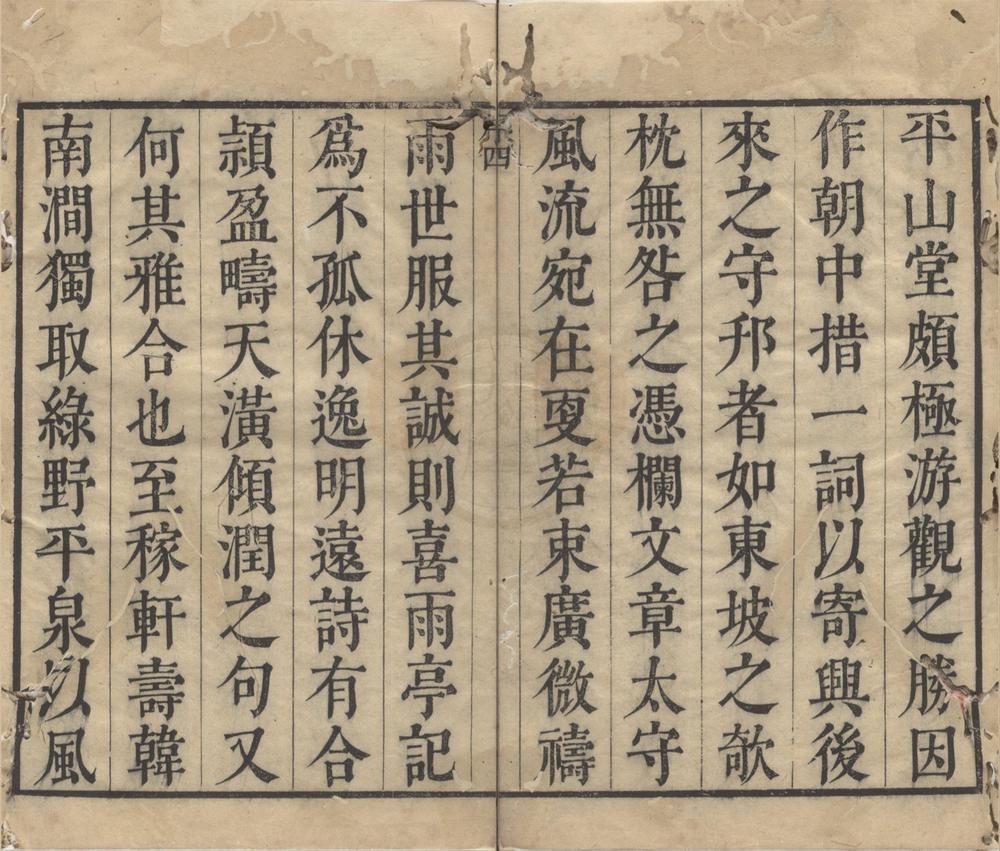 平山堂頗極游觀之勝因
作朝中措一詞以寄興後
來之守邦者如東坡之欹
枕無咎之憑欄文章太守
風流宛在叓若束廣微禱
四
雨世服其誠則喜雨亭記
爲不孤休逸明遠詩有合
頴盈疇天潢傾潤之句又
何其雅合也至稼軒壽韓
南澗獨取綠野平泉以風